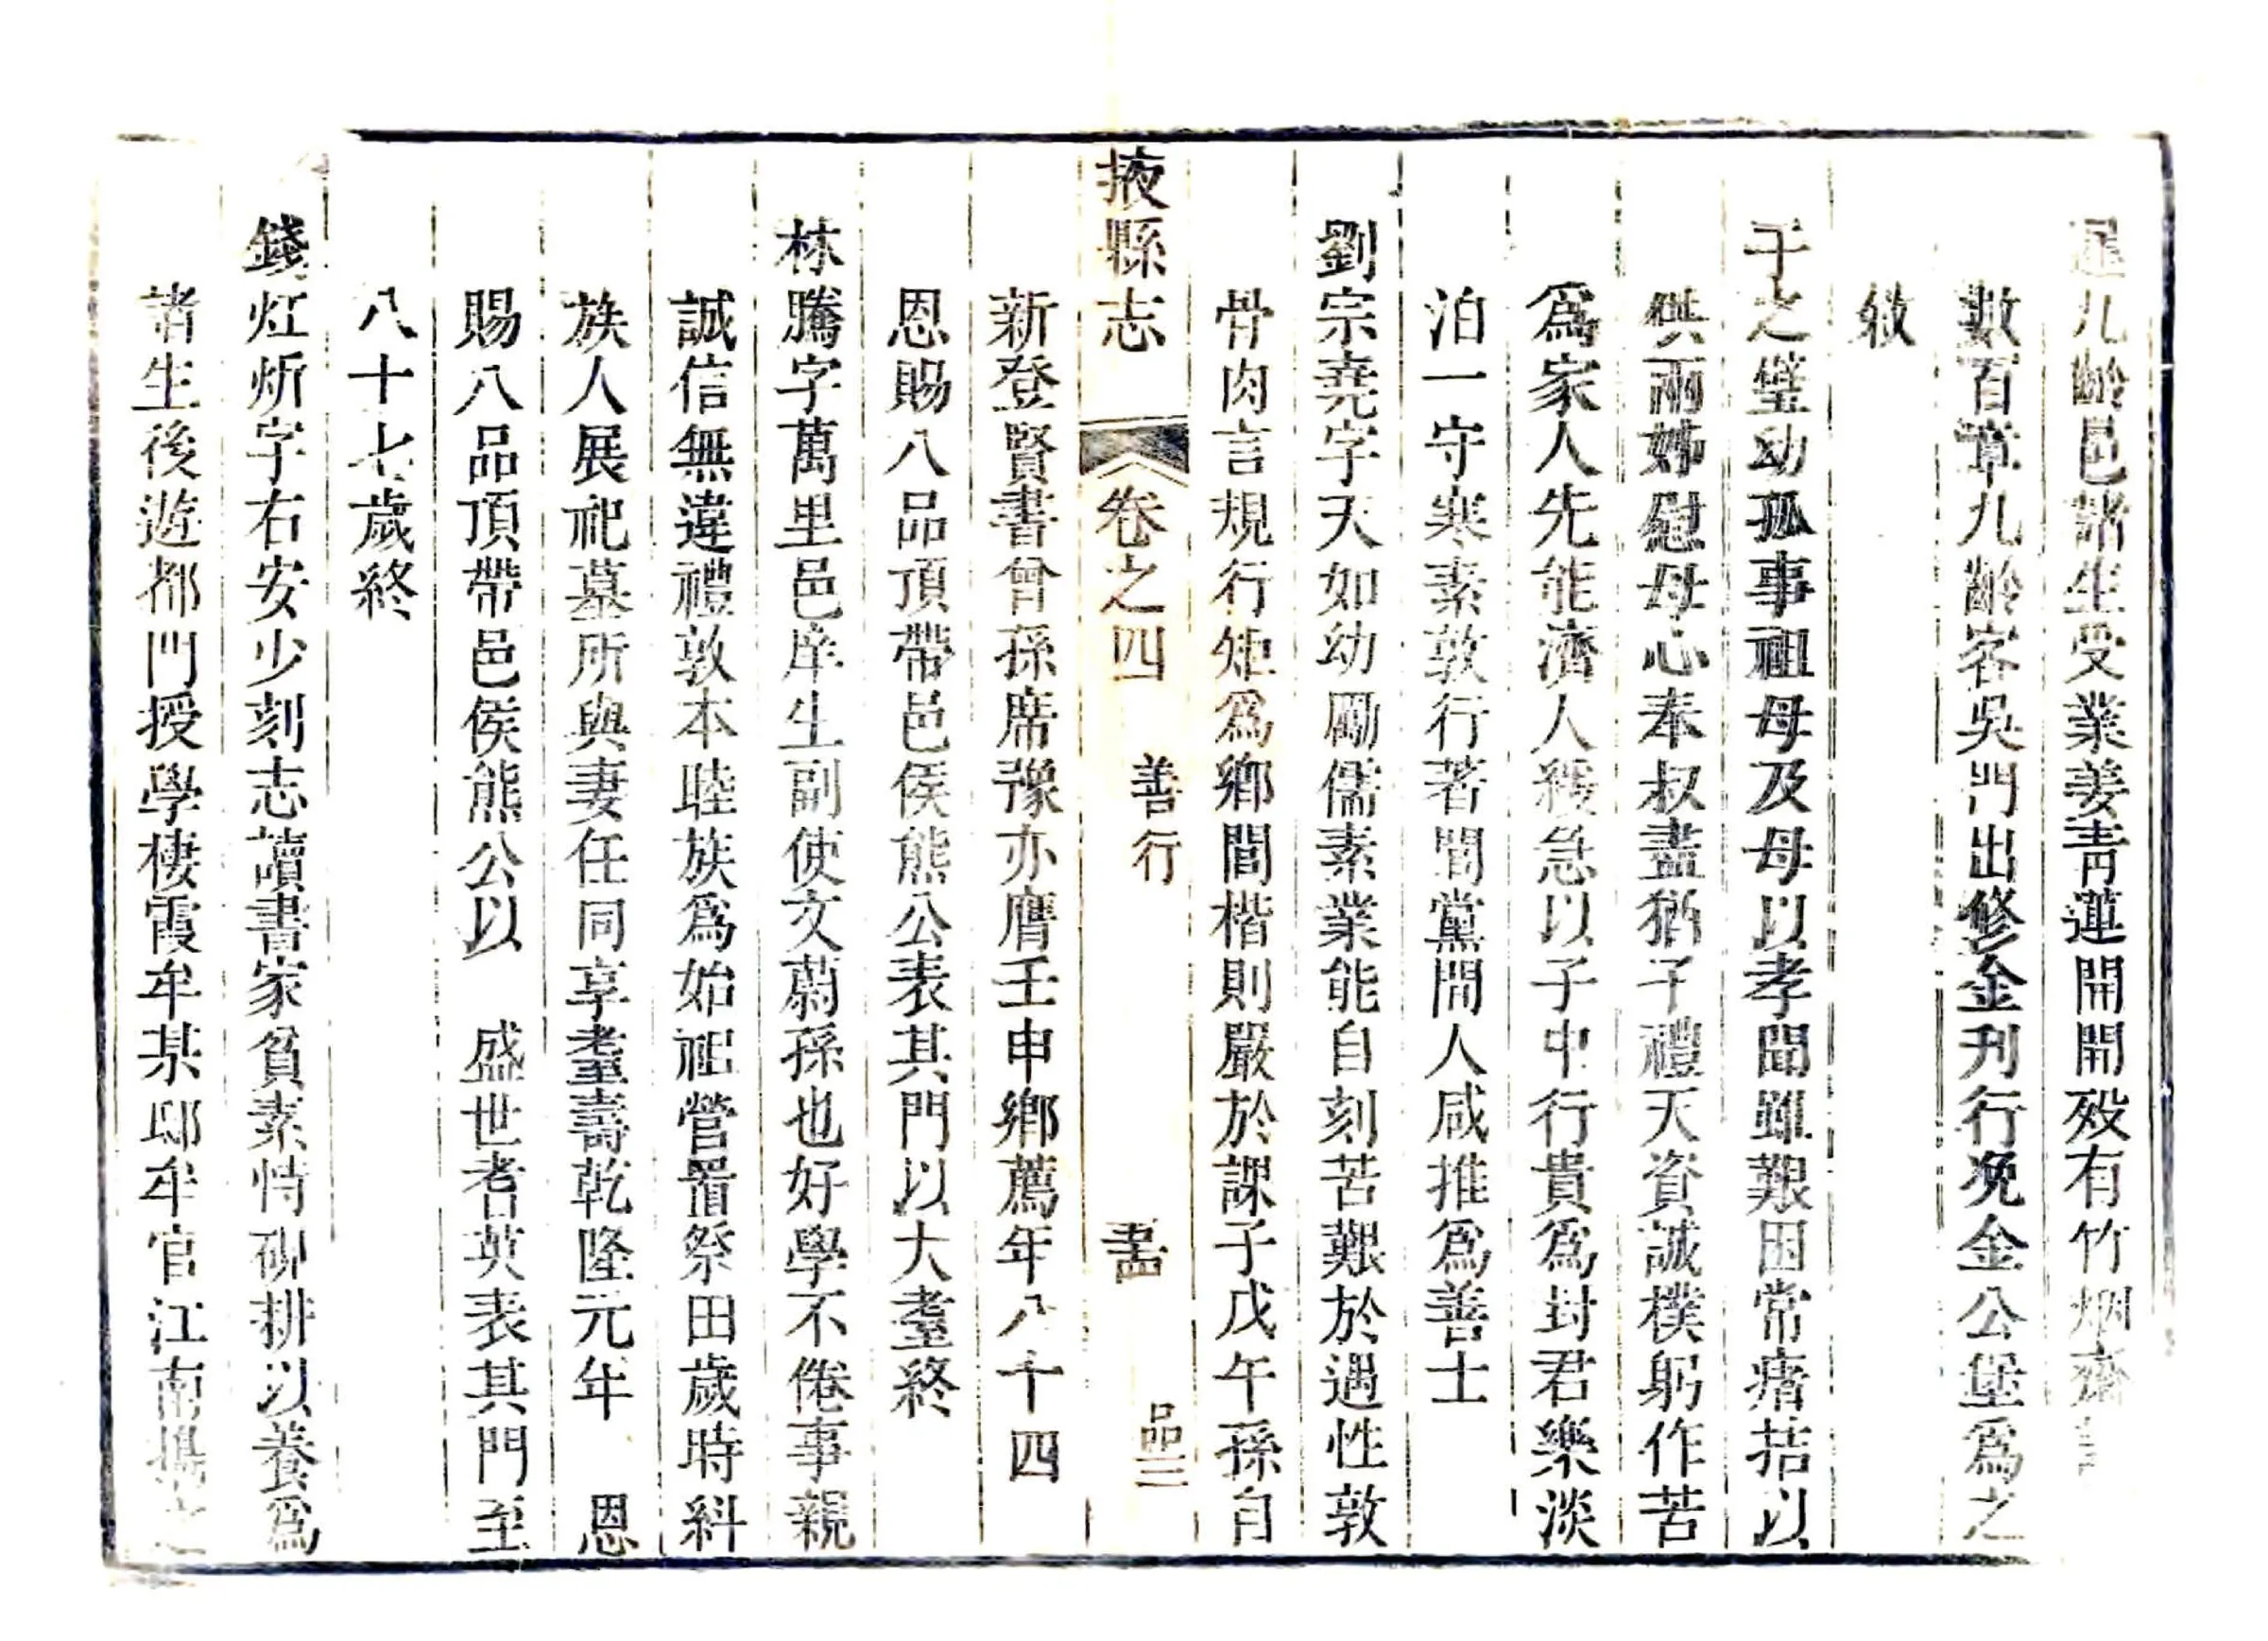 九齡邑諸生受業姜青蓮開開殁有竹烟齋
數百章九齡客吳門出修金刋行兔金公堡爲之
敘
于之璧幼孤事祖母及母以孝聞雖艱困常瘏拮以
供兩姊慰母心奉叔盡猶子禮天資誠樸躬作苦
爲家人先能濟人緩急以子中行貴爲封君樂淡
泊一守寒素敦行著閭黨間人咸推爲善士
劉宗堯字天如幼勵儒素業能自刻苦艱於遇性敦
骨肉言規行矩爲鄉閭楷則嚴於課子戊午孫自
掖縣志 卷之四 善行
新登賢書曾孫席豫亦膺壬申鄉薦年八十四
恩賜八品頂帶邑侯熊公表其門以大耋終
林騰字萬里邑庠生副使文蔚孫也好學不倦事親
誠信無違禮敦本睦族爲始祖營置祭田歲時糾
族人展祀墓所與妻任同享耋壽乾隆元年 恩
賜八品頂帶邑侯熊公以 盛世耆英表其門至
八十七歲終
錢灴炘字右安少刻志讀書家貧素恃硯耕以養爲
諸生後遊都門授學棲霞牟某邸牟官江南攜之